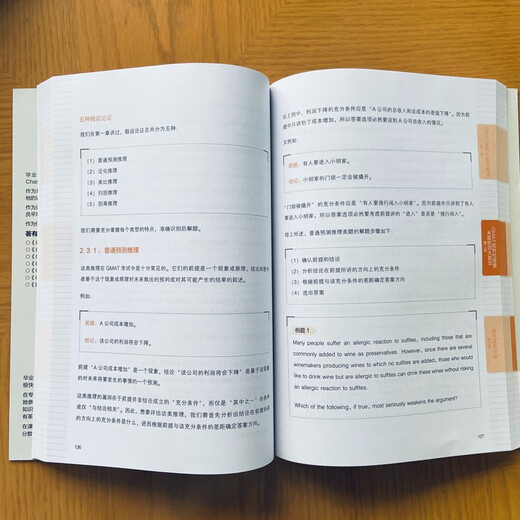 五种假设论证
我们在第一章讲过，假设论证总共分为五种：
（1）普通预测推理
（2）泛化推理
（3）类比推理
（4）归因推理
（5）因果推理
我们需充分掌握每个类型的特点，准确识别后解题。
2.3.1. 普通预测推理
这类推理在 GMAT 考试中是十分常见的。它们的前提是一个现象或意愿，结论则是作
者基于这个现象或意愿对未来做出的预判或对其可能产生的结果的叙述。
例如：
前提：A 公司成本增加。
结论：该公司的利润将会下降。
前提“A 公司成本增加”是一个现象，结论“该公司的利润将会下降”是基于该现象
的对未来将要发生的事情的一个预测。
这类推理的漏洞在于前提并非结论成立的“充分条件”，而仅是“其中之一”的条件
或仅“与结论相关”。因此，想要评估这类推理，我们需首先分析出结论在前提所
的方向上的充分条件是什么，进而根据前提与该充分条件的差距确定答案方向。
106
在上例中，利润下降的充分条件应是“A 公司的总收入和总成本的差值下降”。因为前
提中只讲到了成本增加，所以答案选项必然要谈到 A 公司总收入的情况。
又例如：
前提：有人要进入小明家。
结论：小明家的门锁一定会被撬开。
“门锁被撬开”的充分条件应是“有人要强行闯入小明家”。因为前提只讲到了有人要进
入小明家，所以答案选项必然要考虑前提讲的“进入”是否是“强行闯入”。
综上所述，普通预测推理类题的解题步骤如下：
（1）确认前提和结论
（2）分析结论在前提所讲的方向上的充分条件
（3）根据前提与该充分条件的差距确定答案方向
（4）选出答案
例题 1
Many people suffer an allergic reaction to sulfites, including those that are
commonly added to wine as preservatives. However, since there are several
winemakers producing wines to which no sulfites are added, those who would
like to drink wine but are allergic to sulfites can drink these wines without risking
an allergic reaction to sulfites.
Which of the following, if true, most seriously weakens the argument?
107